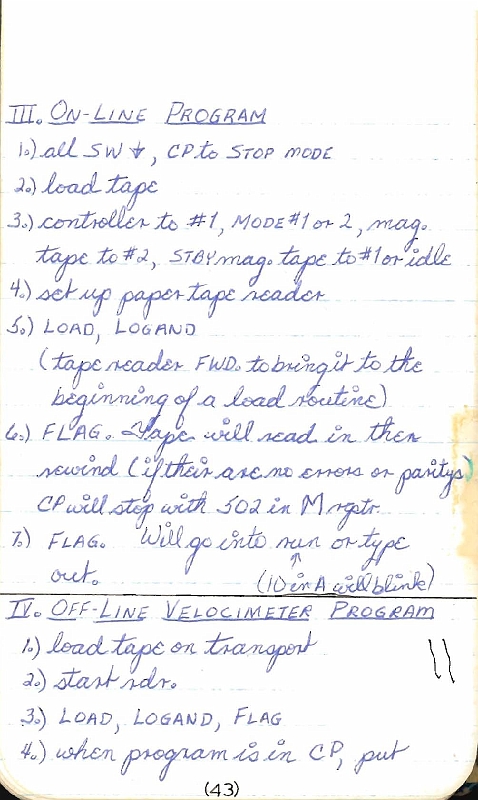 III. ON-LINE PROGRAM
1.) all SW ↓, CP to STOP MODE
2.) load tape
3.) controller to #1, MODE #1 or 2, mag.
tape to #2, STBY mag. tape to #1 or idle
4.) set up paper tape reader
5.) LOAD, LOGAND
(tape reader FWD. to bring it to the
beginning of a load routine)
6.) FLAG. Tape will read in then
rewind (if their are no errors or paritys)
CP will stop with 502 in M rgstr.
7.) FLAG. Will go into run or type
out. ↑ (10 in A will blink)
IV. OFF-LINE VELOCIMETER PROGRAM
1.) load tape on transport
2.) start rdr.
3.) LOAD, LOGAND, FLAG
4.) when program is in CP, put
(43)